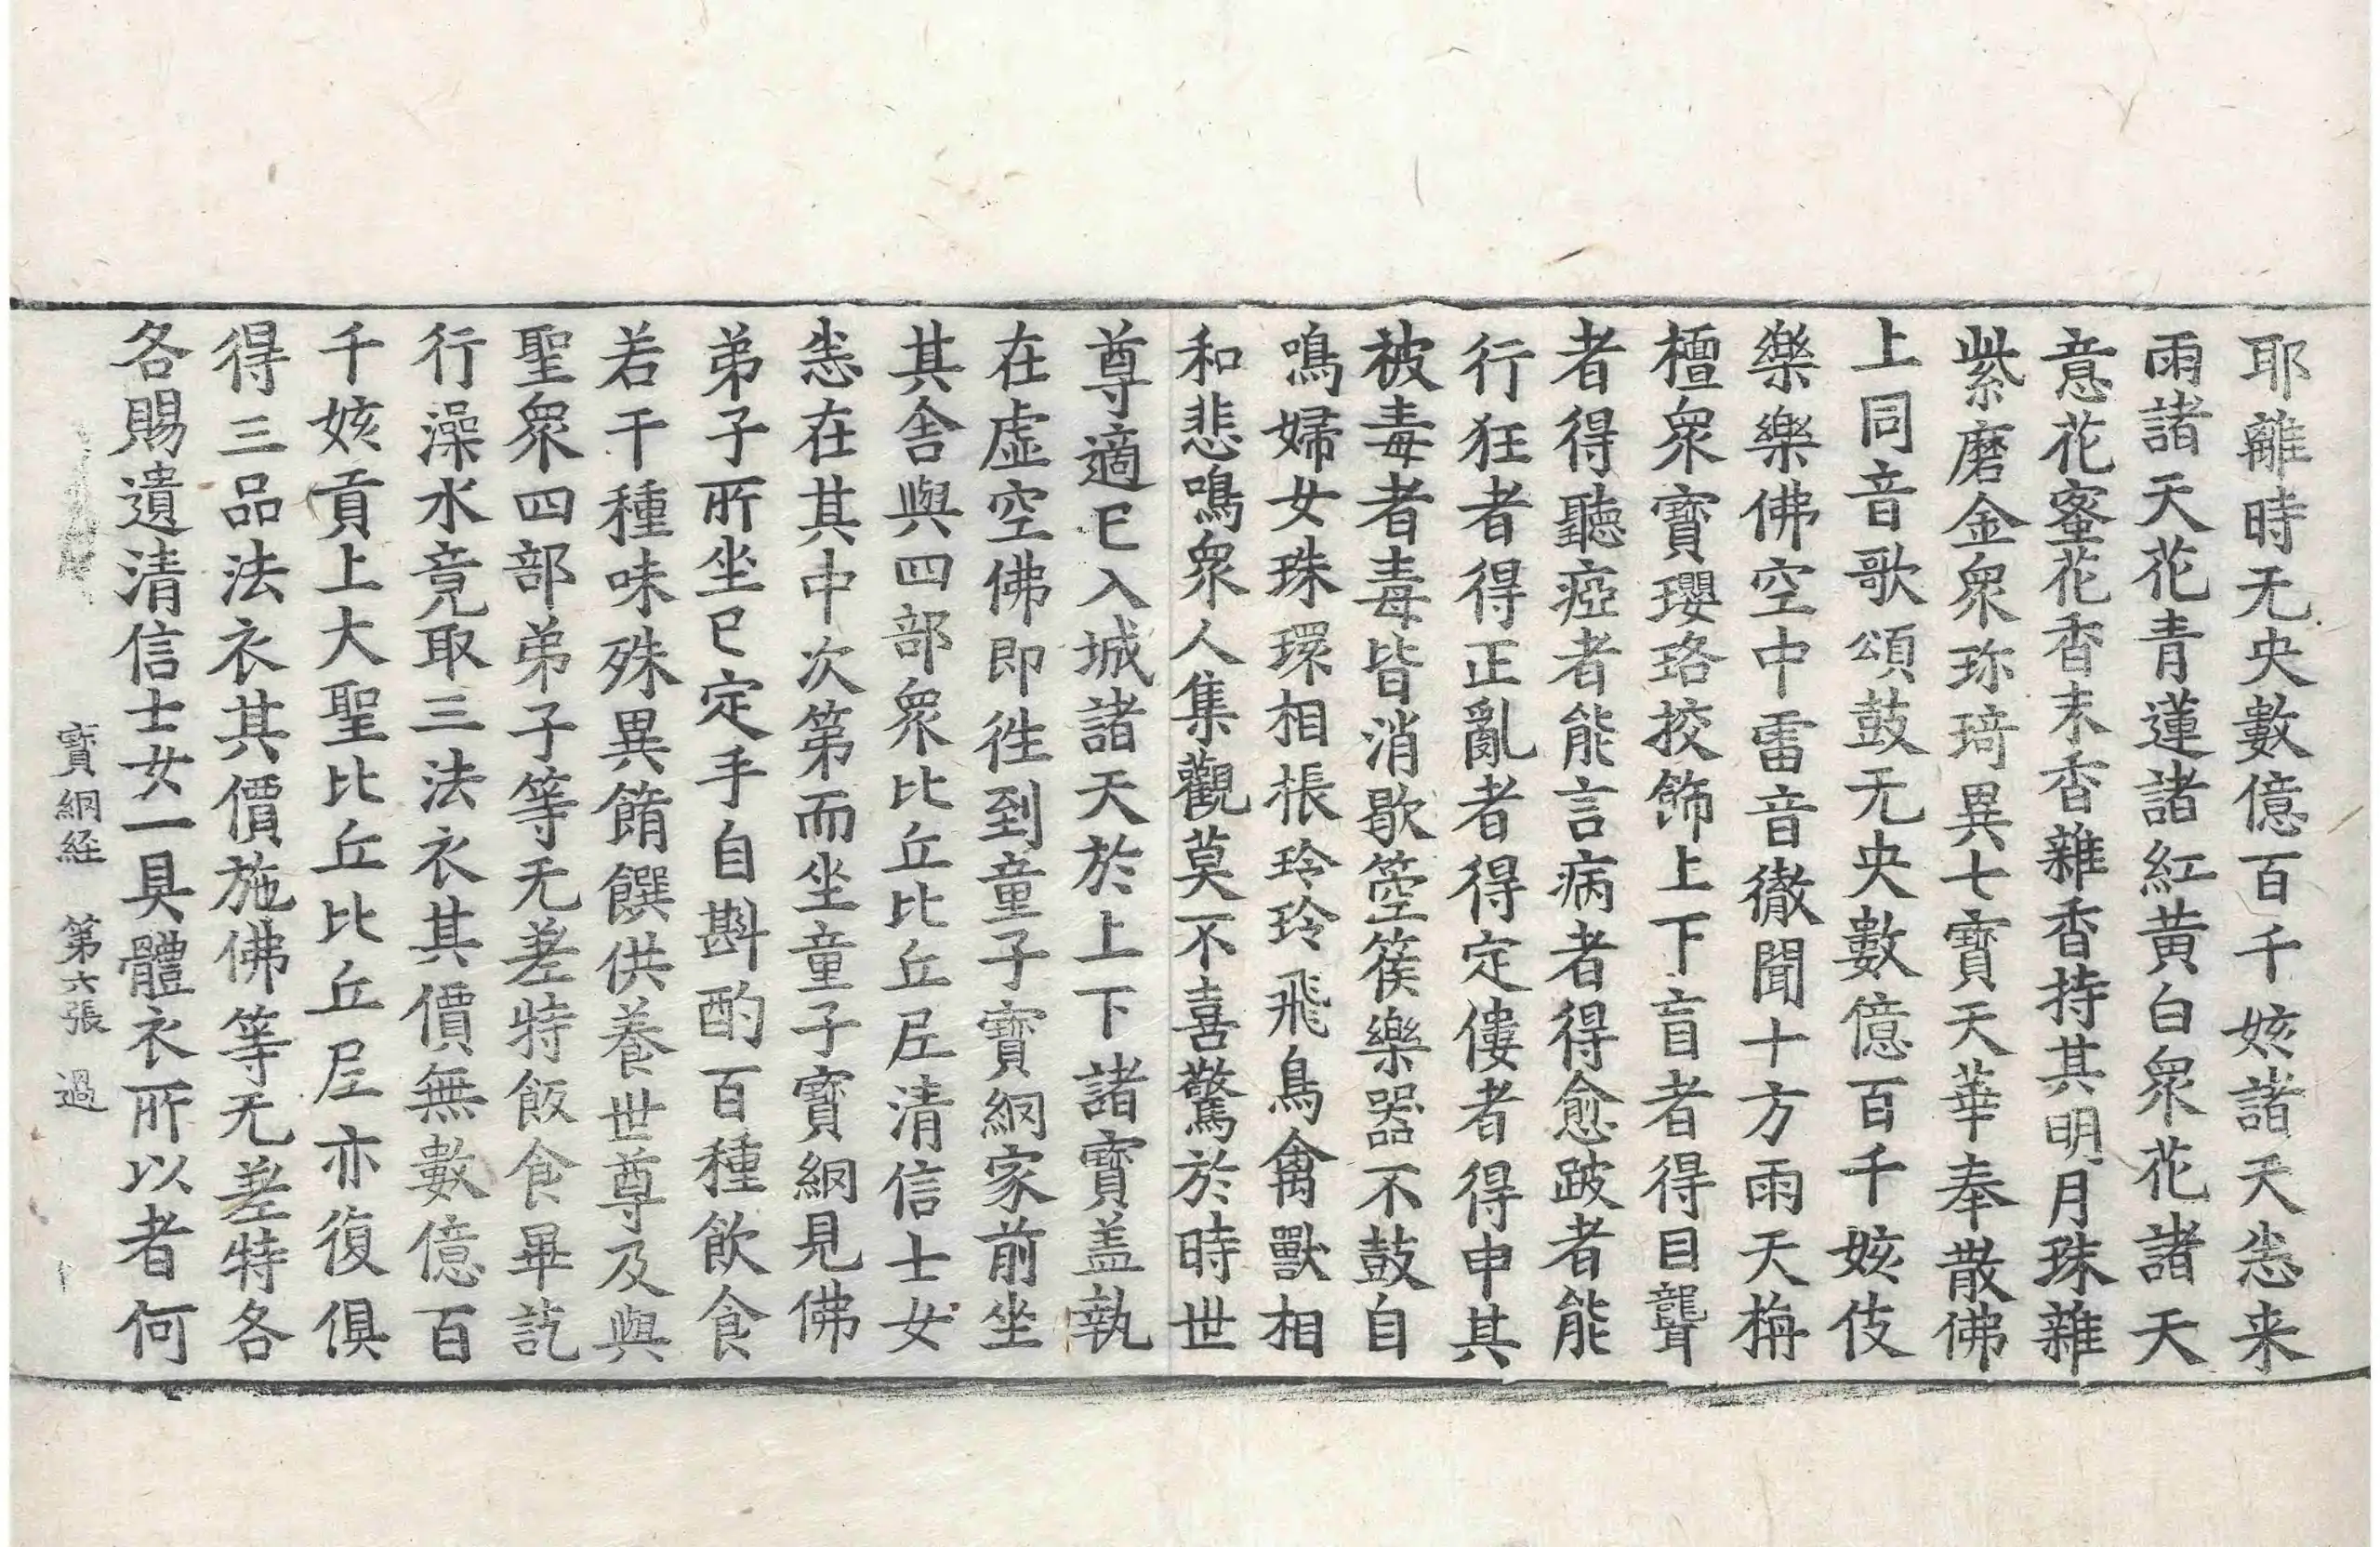 耶離時无央數億百千姟諸天悉来
雨諸天花青蓮諸紅黃白衆花諸天
意花蜜花香末香雜香持其明月珠雜
紫磨金衆珎琦異七寶天華奉散佛
上同音歌頌鼓无央數億百千姟伎
樂樂佛空中雷音徹聞十方雨天栴
檀衆寶瓔珞挍飾上下盲者得目聾
者得聽瘂者能言病者得愈跛者能
行狂者得正亂者得定僂者得申其
被毒者毒皆消歇箜篌樂器不鼓自
鳴婦女珠環相棖玲玲飛鳥禽獸相
和悲鳴衆人集觀莫不喜驚於時世
尊適已入城諸天於上下諸寶盖執
在虛空佛即徃到童子寶網家前坐
其舍與四部衆比丘比丘尼清信士女
悉在其中次第而坐童子寶網見佛
弟子所坐已定手自斟酌百種飮食
若干種味殊異餚饌供養世尊及與
聖衆四部弟子等无差特飯食畢訖
行澡水竟取三法衣其價無數億百
千姟貢上大聖比丘比丘尼亦復俱
得三品法衣其價施佛等无差特各
各賜遺清信士女一具體衣所以者何
寶網経　第六張　過